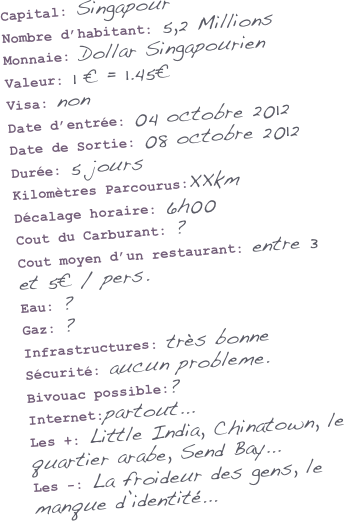 Capital: Singapour
Nombre d'habitant: 5,2 Millions
Monnaie: Dollar Singapourien
Valeur: 1 € = 1.45€
Visa: non
Date d'entrée: 04 octobre 2012
Date de Sortie: 08 octobre 2012
Durée: 5 jours
Kilomètres Parcourus:XXkm
Décalage horaire: 6h00
Cout du Carburant: ?
Cout moyen d'un restaurant: entre 3
et 5€ / pers.
Eau: ?
Gaz: ?
Infrastructures: très bonne
Sécurité: aucun probleme.
Bivouac possible:?
Internet:partout...
Les +: Little India, Chinatown, le
quartier arabe, Send Bay...
Les -: La froideur des gens, le
manque d'identité...